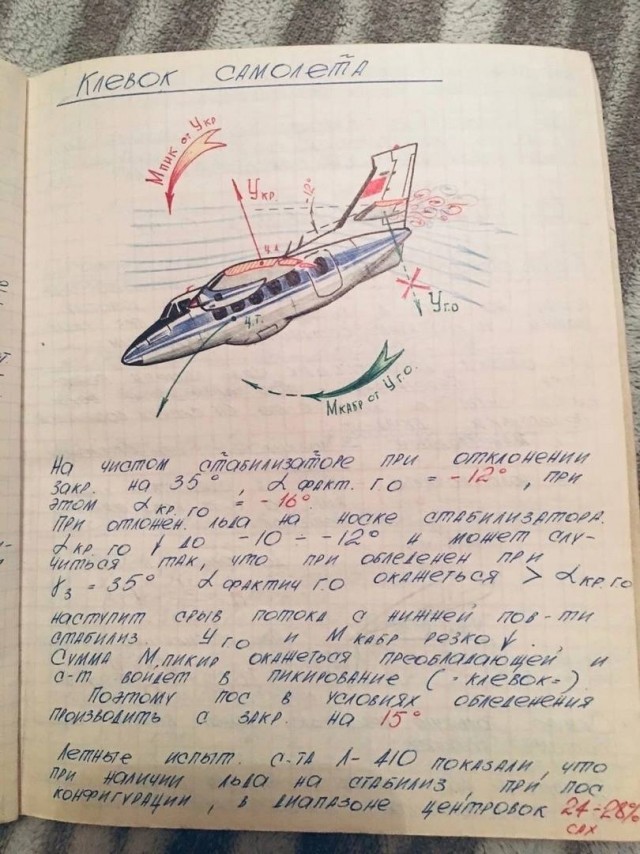 КЛЕВОК САМОЛЕТА
Мпик от Yкр
Yкр.
-12°
ц.т.
Yг.о
Мкабр от Yг.о.
НА ЧИСТОМ СТАБИЛИЗАТОРЕ ПРИ ОТКЛОНЕНИИ
ЗАКР. НА 35°, α ФАКТ. Г.О = -12°, ПРИ
ЭТОМ α КР. ГО = -16°.
ПРИ ОТЛОЖЕН. ЛЬДА НА НОСКЕ СТАБИЛИЗАТОРА.
α КР. ГО ↓ ДО -10 ÷ -12° И МОЖЕТ СЛУ-
ЧИТЬСЯ ТАК, ЧТО ПРИ ОБЛЕДЕНЕН ПРИ
γз = 35° α ФАКТИЧ Г.О ОКАЖЕТЬСЯ > α КР. ГО
НАСТУПИТ СРЫВ ПОТОКА С НИЖНЕЙ ПОВ-ТИ
СТАБИЛИЗ. Y ГО И М КАБР РЕЗКО ↓.
СУММА М ПИКИР ОКАЖЕТЬСЯ ПРЕОБЛАДАЮЩЕЙ И
С-Т ВОЙДЕТ В ПИКИРОВАНИЕ (=КЛЕВОК=)
ПОЭТОМУ ПОС В УСЛОВИЯХ ОБЛЕДЕНЕНИЯ
ПРОИЗВОДИТЬ С ЗАКР. НА 15°
ЛЕТНЫЕ ИСПЫТ. С-ТА Л-410 ПОКАЗАЛИ, ЧТО
ПРИ НАЛИЧИИ ЛЬДА НА СТАБИЛИЗ, ПРИ ПОС
КОНФИГУРАЦИИ, В ДИАПАЗОНЕ ЦЕНТРОВОК 24-28%
САХ